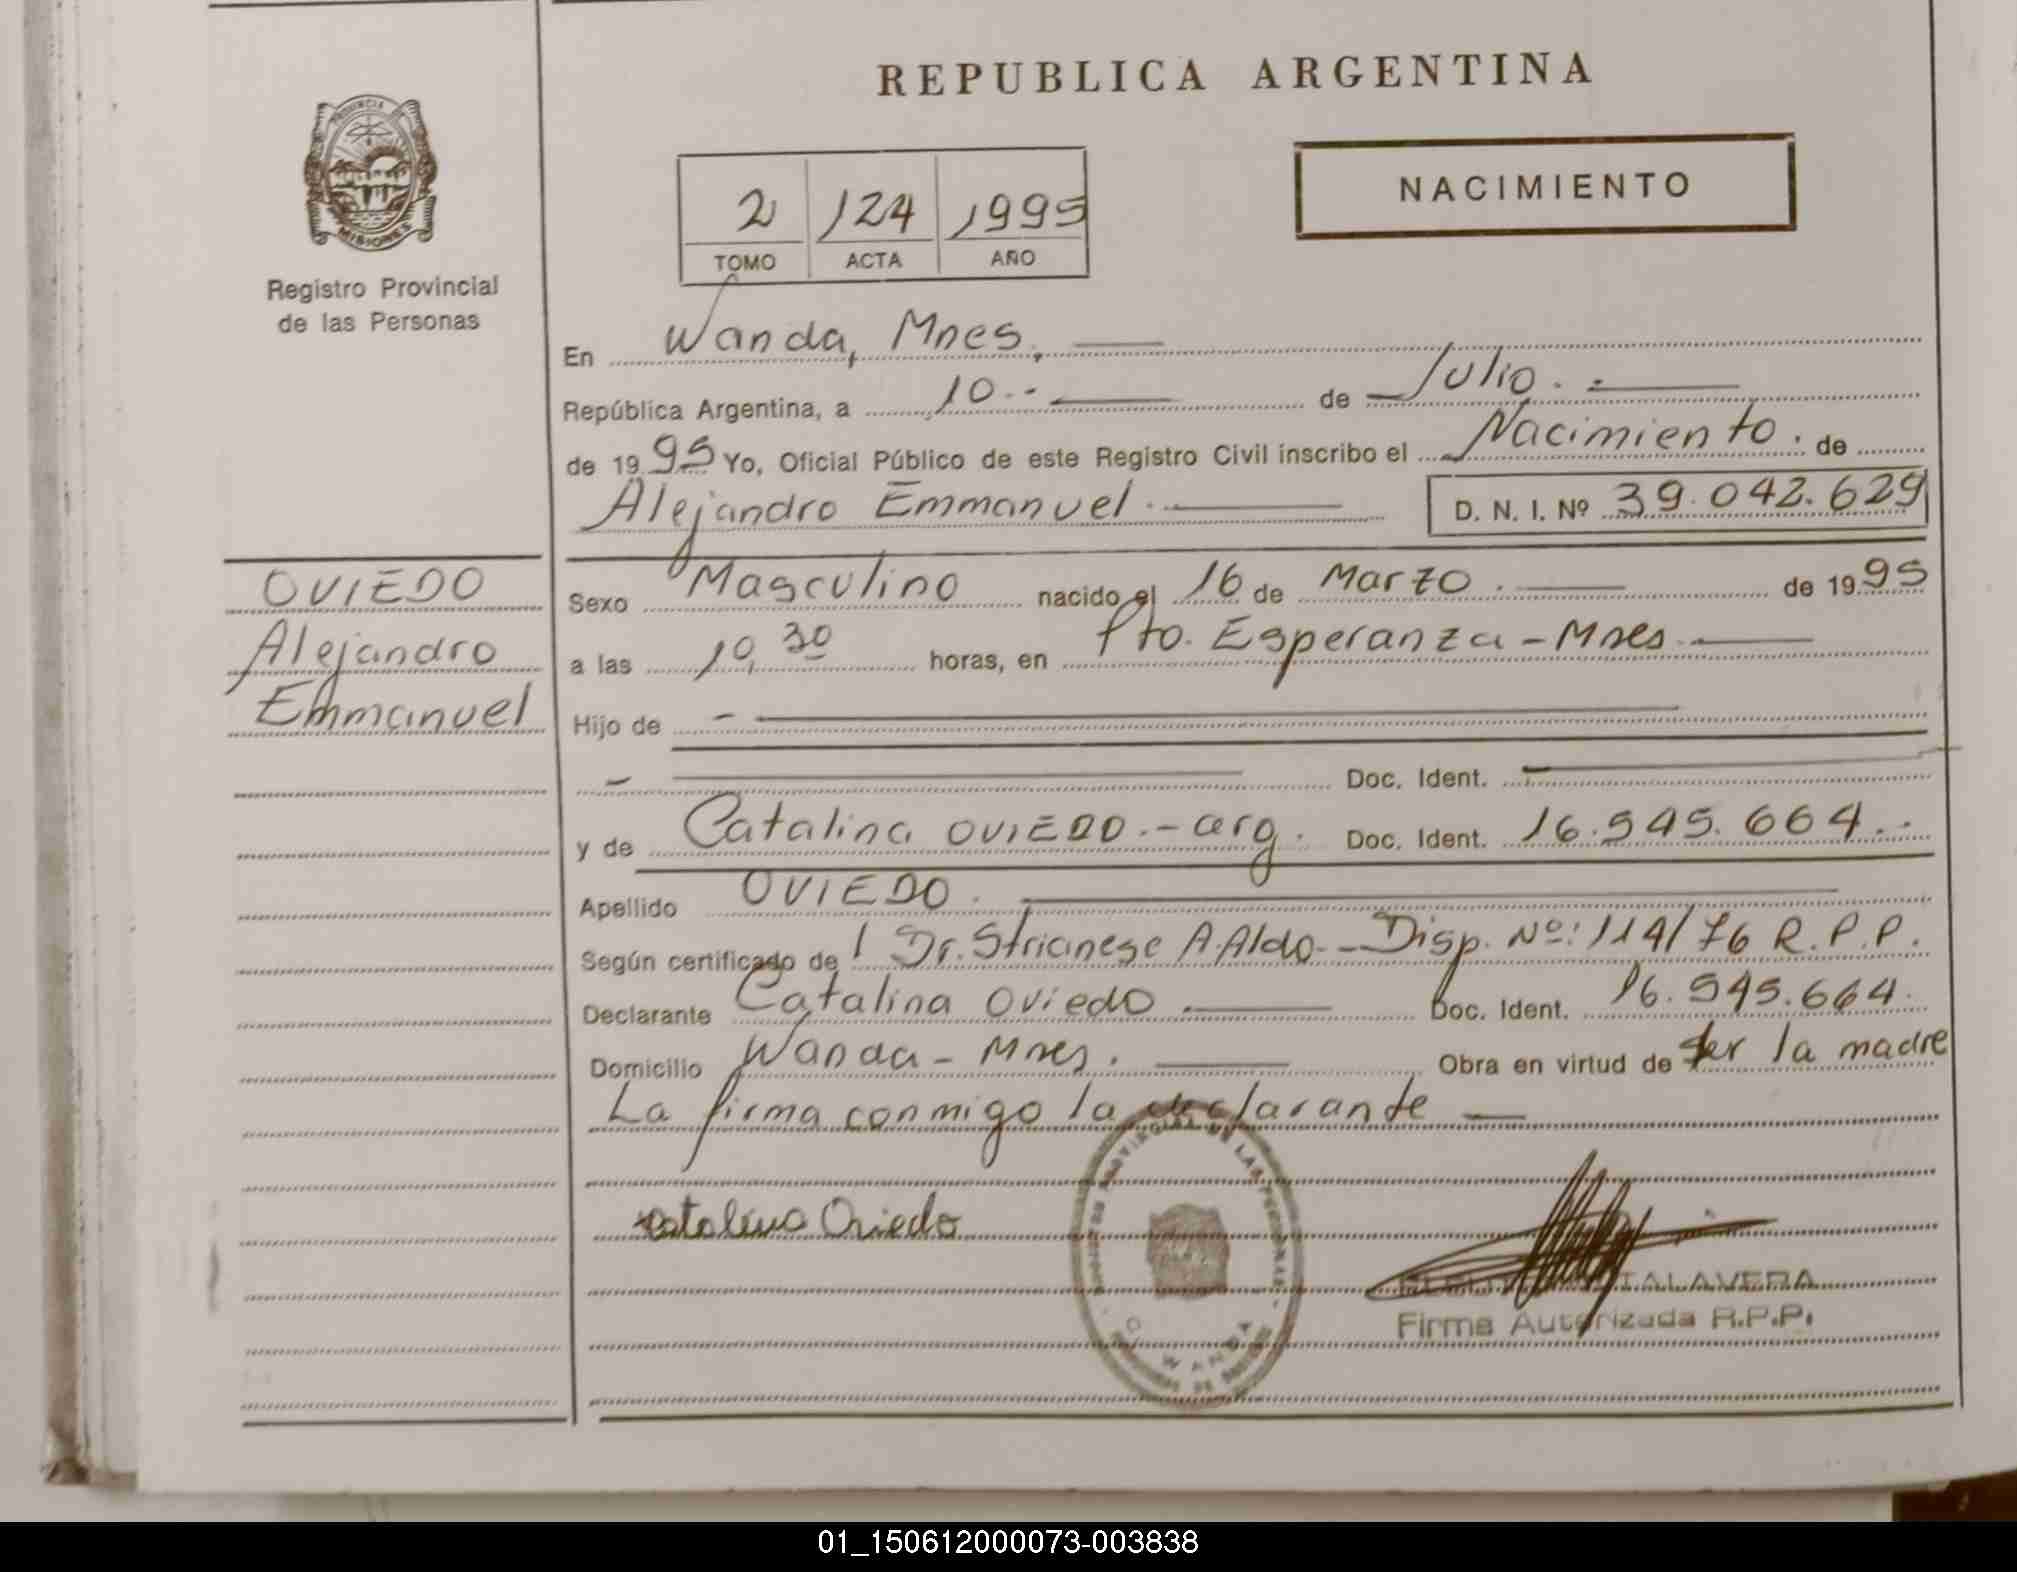 REPUBLICA ARGENTINA
PROVINCIA
MISIONES
Registro Provincial
de las Personas
2 124 1995
TOMO ACTA AÑO
NACIMIENTO
En Wanda, Mnes.
República Argentina, a 10.- de Julio.
de 1995 Yo, Oficial Público de este Registro Civil inscribo el Nacimiento. de
Alejandro Emmanuel.
D. N. I. Nº 39.042.629
OVIEDO
Alejandro
Emmanuel
Sexo Masculino nacido el 16 de Marzo. de 1995
a las 10,30 horas, en Pto. Esperanza - Mnes
Hijo de -
- Doc. Ident. -
y de Catalina OVIEDO.- arg. Doc. Ident. 16.545.664.-
Apellido OVIEDO.
Según certificado de Dr. Strianese A. Aldo - Disp. Nº: 114/76 R.P.P.
Declarante Catalina Oviedo Doc. Ident. 16.545.664.
Domicilio Wanda - Mnes. Obra en virtud de ser la madre
La firma conmigo la declarante
Catalina Oviedo
TALAVERA
Firma Autorizada R.P.P.
WANDA
01_150612000073-003838